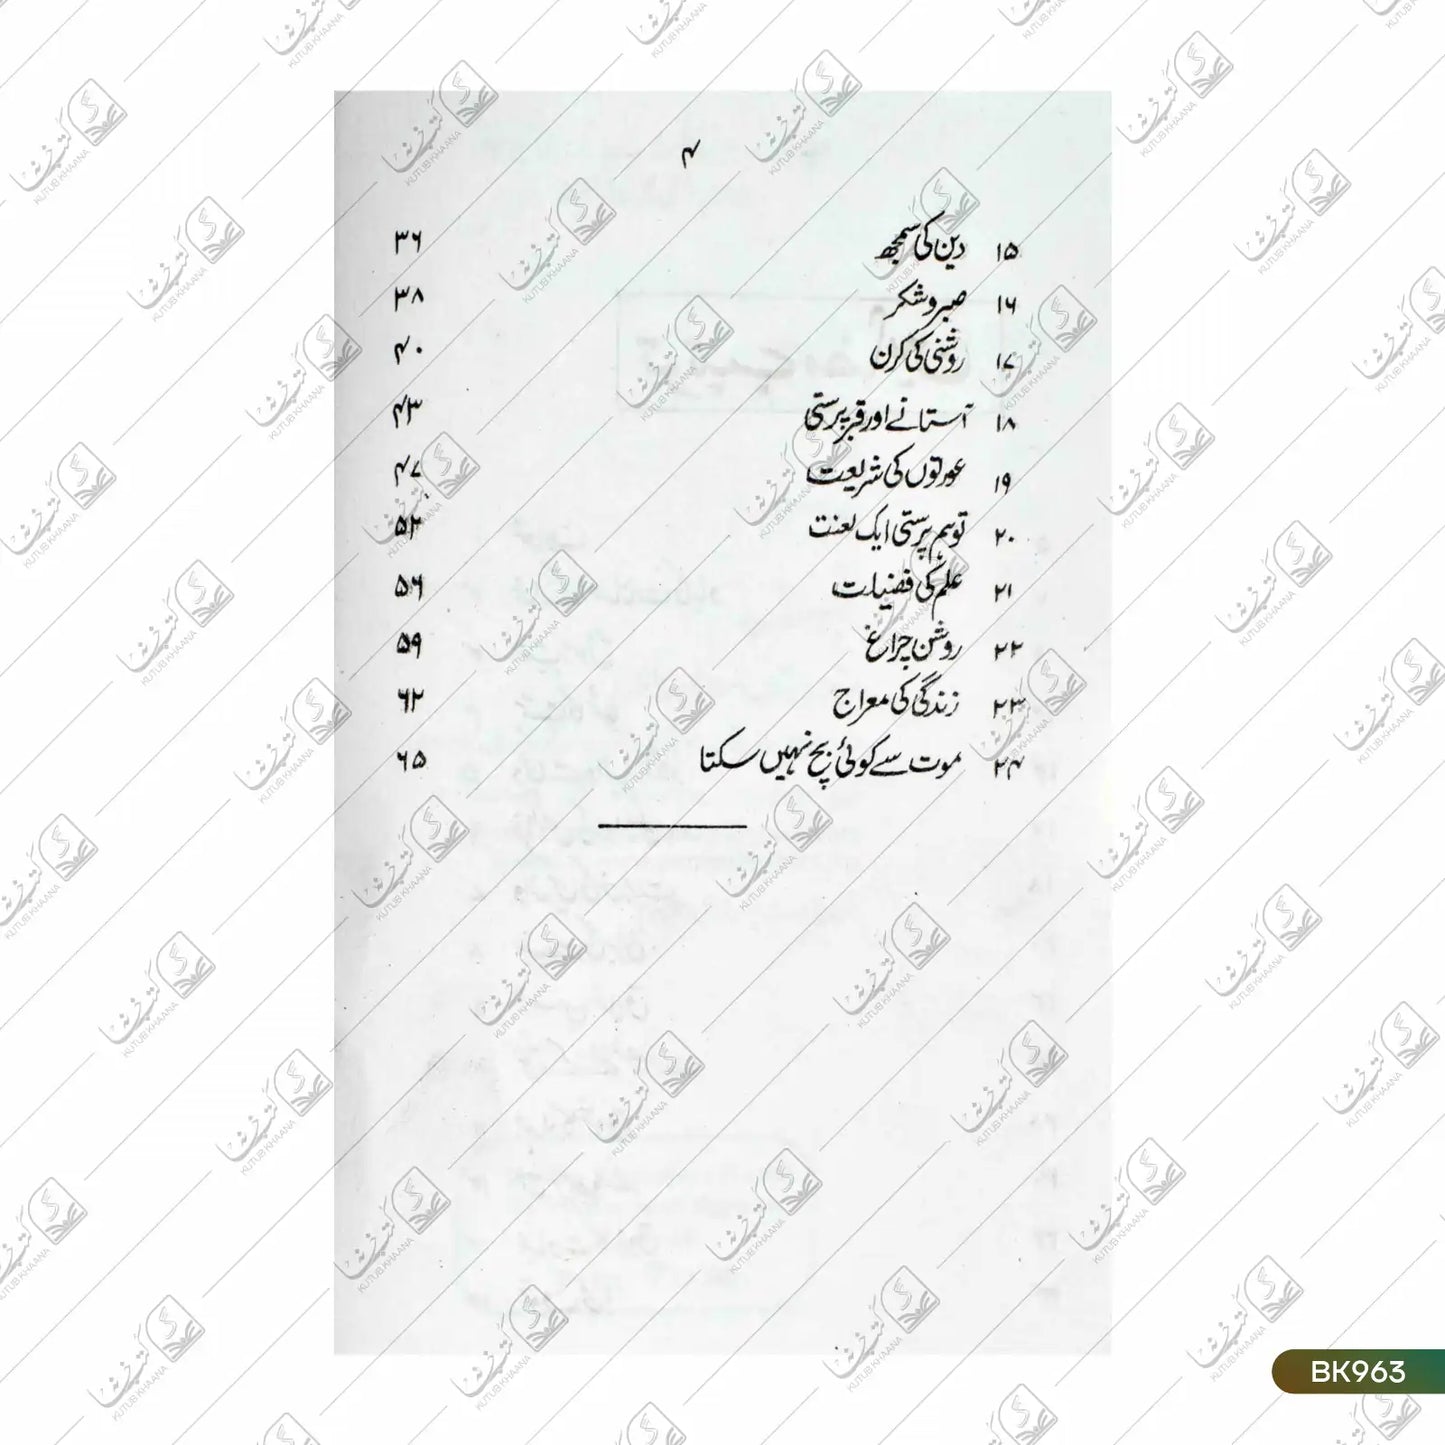 ۴
۱۵ دین کی سمجھ ۳۶
۱۶ صبر و شکر ۳۸
۱۷ روشنی کی کرن ۴۰
۱۸ آستانے اور قبر پرستی ۴۳
۱۹ عورتوں کی شریعت ۴۷
۲۰ توہم پرستی ایک لعنت ۵۲
۲۱ علم کی فضیلت ۵۶
۲۲ روشن چراغ ۵۹
۲۳ زندگی کی معراج ۶۲
۲۴ موت سے کوئی بچ نہیں سکتا ۶۵
BK963
KUTUB KHAANA